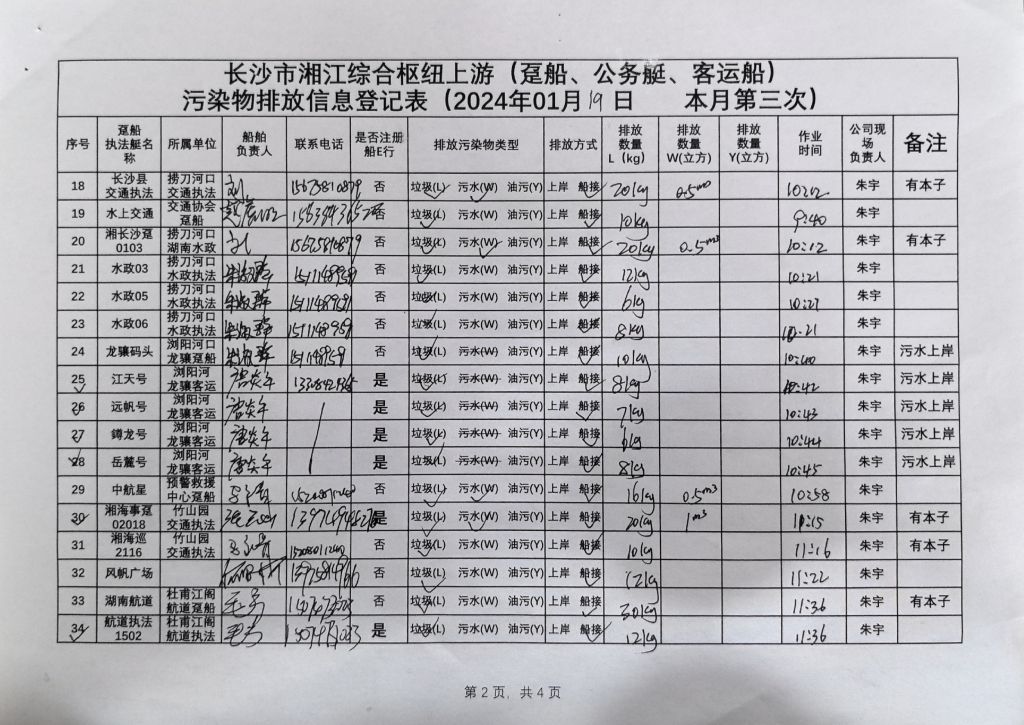 长沙市湘江综合枢纽上游（趸船、公务艇、客运船）
污染物排放信息登记表（2024年01月19日 本月第三次）
序号 趸船执法艇名称 所属单位 船舶负责人 联系电话 是否注册船E行 排放污染物类型 排放方式 排放数量L（kg） 排放数量W(立方) 排放数量Y(立方) 作业时间 公司现场负责人 备注
18 长沙县交通执法 捞刀河口交通执法 15675810879 否 垃圾(L) 污水(W) 油污(Y) 上岸 船接 20kg 0.5m³ 10:02 朱宇 有本子
19 水上交通 交通协会趸船 否 垃圾(L) 污水(W) 油污(Y) 上岸 船接 10kg 9:40 朱宇
20 湘长沙趸0103 捞刀河口湖南水政 15675810879 否 垃圾(L) 污水(W) 油污(Y) 上岸 船接 20kg 0.5m³ 10:12 朱宇 有本子
21 水政03 捞刀河口水政执法 否 垃圾(L) 污水(W) 油污(Y) 上岸 船接 12kg 10:21 朱宇
22 水政05 捞刀河口水政执法 否 垃圾(L) 污水(W) 油污(Y) 上岸 船接 6kg 10:21 朱宇
23 水政06 捞刀河口水政执法 否 垃圾(L) 污水(W) 油污(Y) 上岸 船接 8kg 10:21 朱宇
24 龙骧码头 浏阳河龙骧趸船 否 垃圾(L) 污水(W) 油污(Y) 上岸 船接 10kg 10:40 朱宇 污水上岸
25 江天号 浏阳河龙骧客运 是 垃圾(L) 污水(W) 油污(Y) 上岸 船接 8kg 10:42 朱宇 污水上岸
26 远帆号 浏阳河龙骧客运 是 垃圾(L) 污水(W) 油污(Y) 上岸 船接 7kg 10:43 朱宇 污水上岸
27 鐏龙号 浏阳河龙骧客运 是 垃圾(L) 污水(W) 油污(Y) 上岸 船接 6kg 10:44 朱宇 污水上岸
28 岳麓号 浏阳河龙骧客运 是 垃圾(L) 污水(W) 油污(Y) 上岸 船接 8kg 10:45 朱宇 污水上岸
29 中航星 预警救援中心趸船 否 垃圾(L) 污水(W) 油污(Y) 上岸 船接 16kg 0.5m³ 10:58 朱宇
30 湘海事趸02018 竹山园交通执法 是 垃圾(L) 污水(W) 油污(Y) 上岸 船接 20kg 1m³ 11:15 朱宇 有本子
31 湘海巡2116 竹山园交通执法 否 垃圾(L) 污水(W) 油污(Y) 上岸 船接 10kg 11:16 朱宇 有本子
32 风帆广场 否 垃圾(L) 污水(W) 油污(Y) 上岸 船接 12kg 11:22 朱宇
33 湖南航道 杜甫江阁航道趸船 否 垃圾(L) 污水(W) 油污(Y) 上岸 船接 30kg 11:36 朱宇 有本子
34 航道执法1502 杜甫江阁航道执法 是 垃圾(L) 污水(W) 油污(Y) 上岸 船接 12kg 11:36 朱宇
第 2 页, 共 4 页